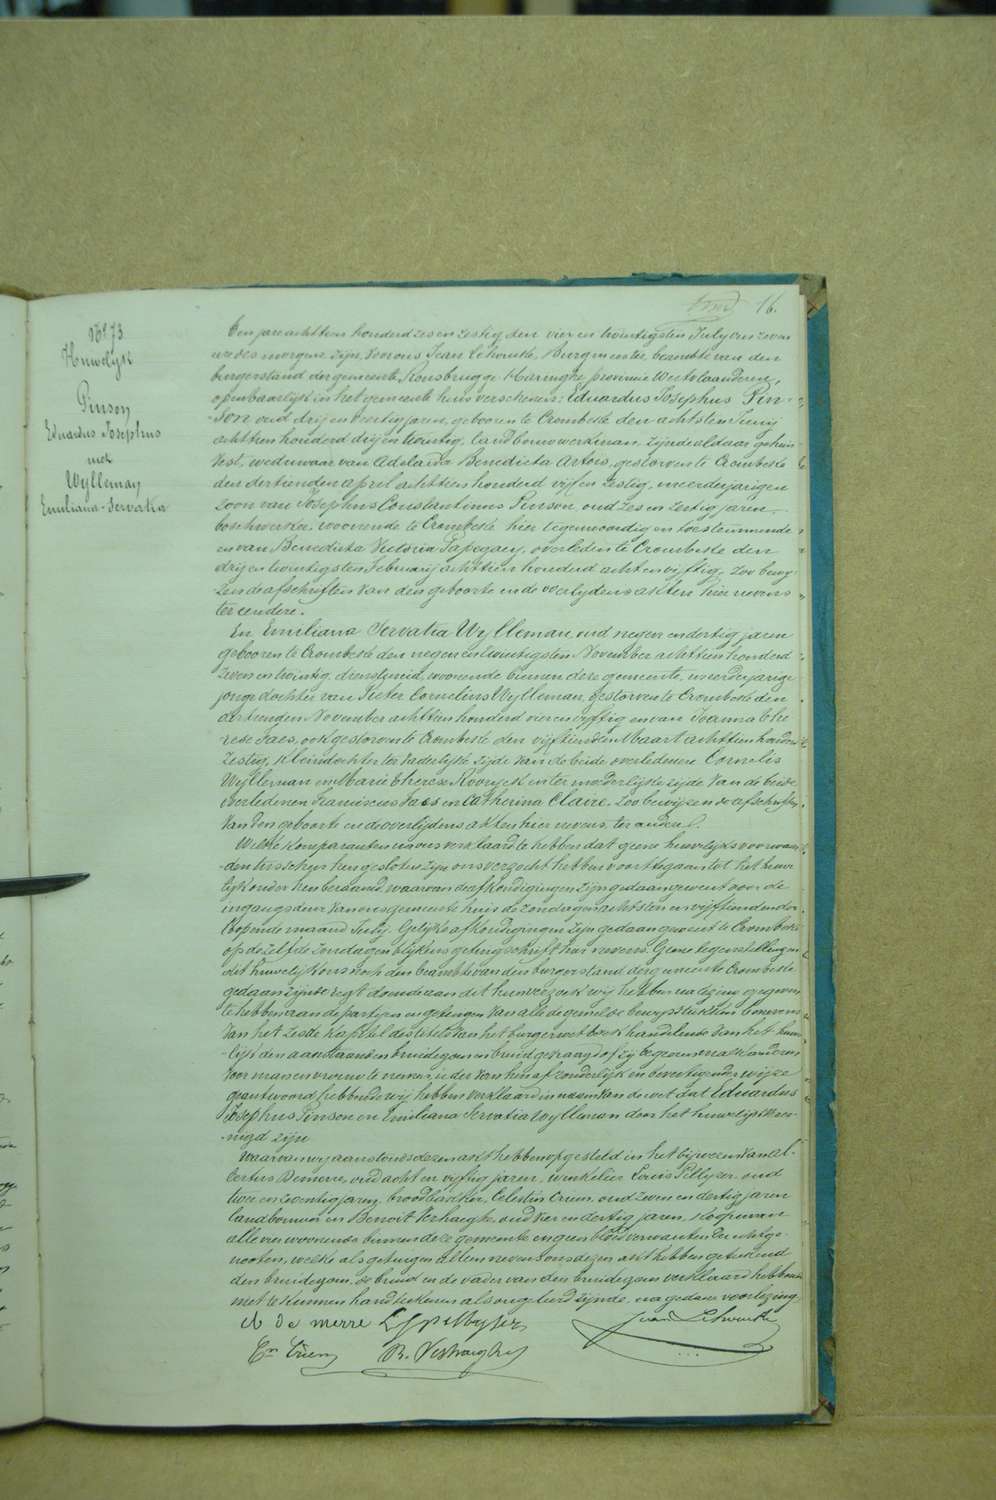 16.
N° 13
Huwelyk
Pinson
Eduardus Josephus
met
Wylleman
Emiliana-Servatia
Een jare achttien honderd zes en zestig den vier en twintigsten July om zeven
ure des morgens zijn voor ons Jean Lehoucke, Burgmeester, beambte van den
burgerstand der gemeente Rousbrugge-Haringhe provincie Westvlaanderen,
openbaarlijk in het gemeente huis verschenen: Eduardus Josephus Pin-
son oud drij en veertig jaren, geboren te Crombeke den achtsten Junij
achttien honderd drij en twintig, landbouwwerkman, zijnde aldaar gehuis-
vest, weduwaar van Adelaida Benedicta Artois, gestorven te Crombeke
den dertienden april achttien honderd vijf en zestig, meerderjarigen
zoon van Josephus Constantinus Pinson, oud zes en zestig jaren
boschwerker, woonende te Crombeke hier tegenwoordig en toestemmende
en van Benedicta Victoria Papegaey, overleden te Crombeke den
drij en twintigsten Februarij achttien honderd acht en vijftig, zoo bewij-
zen de afschriften van den geboorte en de overlijdens akten hier nevens
En Emiliana Servatia Wylleman, oud negen en dertig jaren
geboren te Crombeke den negen en twintigsten November achttien honderd
zeven en twintig, dienstmeid, woonende binnen deze gemeente, meerderjarige
jonge dochter van Pieter Cornelius Wylleman, gestorven te Crombeke den
November achttien honderd vier en vijftig en van Joanna The
rese Faes, ook gestorven te Crombeke den vijftienden Maart achttien honderd
zestig, kleindochter ter vaderlijke zijde van de beide overledene Cornelis
Wylleman en Marie Therese Rooryck en ter moederlijke zijde van de beide
overledenen Franciscus Faes en Catherina Claire. Zoo bewijzen de afschriften
van den geboorte en de overlijdens akten hier nevens
Welke komparanten na ons verklaard te hebben dat geene huwelijks voorwaar-
den tusschen hen gesloten zijn ons verzocht hebben voorttegaan tot het huwe-
lijk onder hen beraamd, waarvan de afkondigingen zijn gedaan geweest voor de
ingangsdeur van ons gemeente huis de zondagen achtsten en vijftienden der
loopende maand July. Gelijke afkondigingen zijn gedaan geweest te Crombeke
op de zelfde zondagen blijkens getuigschrift hier nevens. Geene tegenstelling aan
dit huwelijk ons noch den beambte van den burgerstand der gemeente Crombeke
gedaan zijnde regt doende aan dit hun verzoek wij hebben na lezing gegeven
te hebben aan de partijen en getuigen van alle de gemelde bewijsstukken benevens
van het zesde kapittel des titels van het burger wetboek handelende van het huwe-
lijk den aanstaanden bruidegom en bruid gevraagd of zij begeeren malkanderen
voor man en vrouw te nemen, ieder van hen afzonderlijk en bevestigender wijze
geantwoord hebbende wij hebben verklaard in naam van de wet dat Eduardus
Josephus Pinson en Emiliana Servatia Wylleman door het huwelijk veree-
nigd zijn
Waarvan wij aanstonds dezen akt hebben opgesteld in het bijwezen van Al-
bertus Demerre, oud acht en vijftig jaren, winkelier Louis oud
twee en zeventig jaren, broodbakker, Celestin Crum, oud zeven en dertig jaren
landbouwer en Benoit Verhaeghe, oud vier en dertig jaren, koopman
alle vier woonende binnen deze gemeente en geen bloedverwanten der echtge-
nooten, welke als getuigen allen nevens ons dezen akt hebben geteekend
den bruidegom, de bruid en de vader van den bruidegom verklaard hebbende
niet te kunnen handteekenen als ongeleerd zijnde, na gedane voorlezing
Jean Lehoucke
B. Verhaeghe